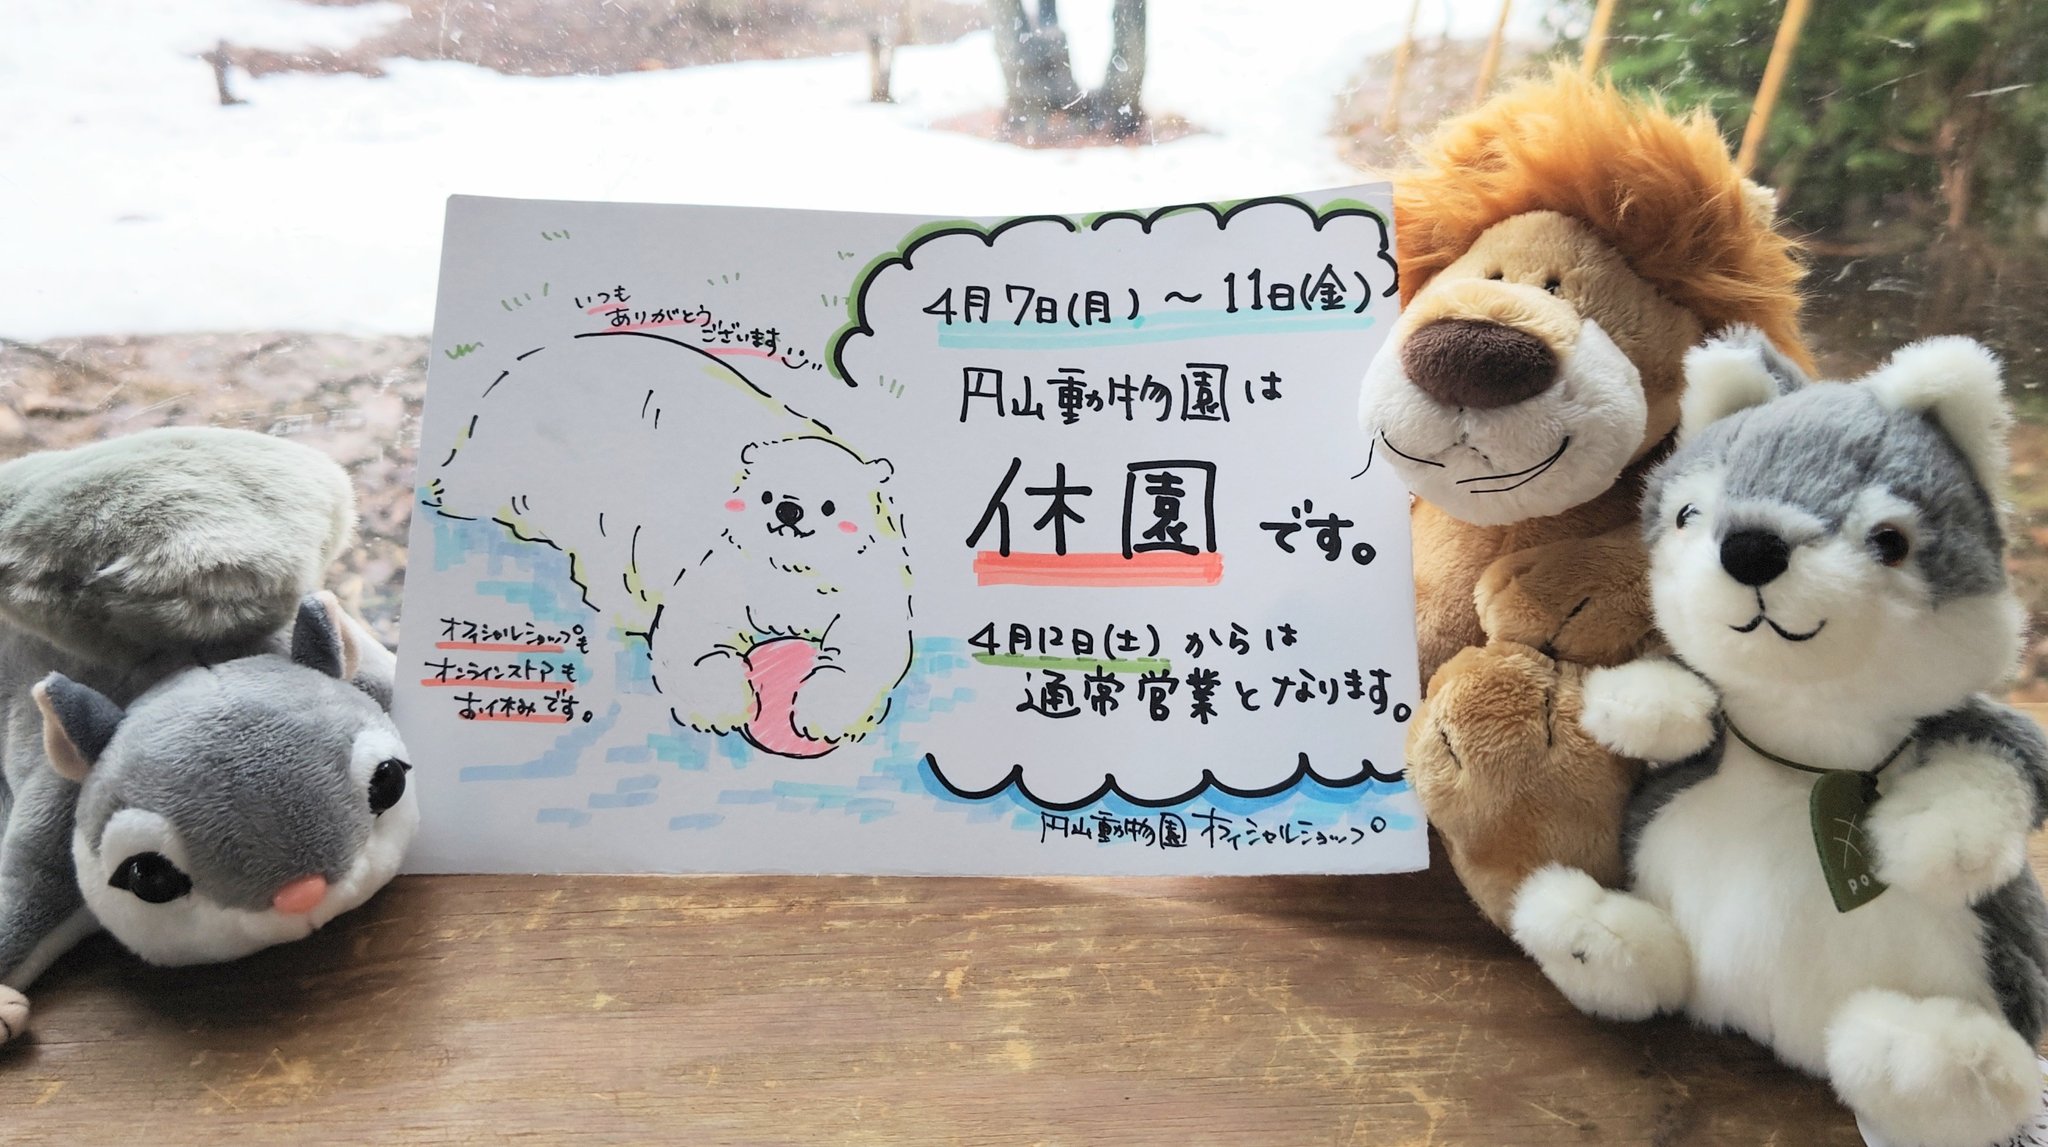 いつも
ありがとう
ございます
4月7日(月)～11日(金)
円山動物園は
休園です。
4月12日(土)からは
通常営業となります。
オフィシャルショップも
オンラインストアも
お休みです。
円山動物園オフィシャルショップ